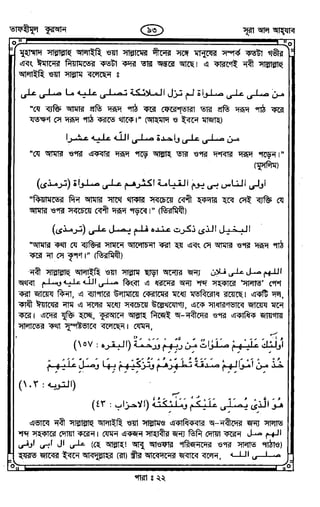 তাফহীমুল কুরআন
৯৩
সূরা আল আহযাব
মুহাম্মাদ সাল্লাল্লাহু আলাইহি ওয়া সাল্লামের দীনের সঙ্গে মানুষের সম্পর্ক কতটা গভীর
এবং ঈমানের নিয়ামতের কতটা কদর তার অন্তরে আছে। এ কারণেই নবী সাল্লাল্লাহু
আলাইহি ওয়া সাল্লাম বলেছেন :
من صلى على صلوة لم تزل الملائكة تصلى عليه ما صلى على
"যে ব্যক্তি আমার প্রতি দরূদ পাঠ করে ফেরেশতারা তার প্রতি দরূদ পাঠ করে
যতক্ষণ সে দরূদ পাঠ করতে থাকে।" (আহমাদ ও ইবনে মাজাহ)
من صلى على واحدة صلى الله عليه عشرا
"যে আমার ওপর একবার দরূদ পড়ে আল্লাহ তার ওপর দশবার দরূদ পড়েন।"
(মুসলিম)
اولى الناس بى يوم القيامة اكثرهم على صلوة (ترمذى)
"কিয়ামতের দিন আমার সাথে থাকার সবচেয়ে বেশী হকদার হবে সেই ব্যক্তি যে
আমার ওপর সবচেয়ে বেশী দরূদ পড়বে।" (তিরমিযী)
البخيل الذى ذكرت عنده فلم يصل على (ترمذى)
"আমার কথা যে ব্যক্তির সামনে আলোচনা করা হয় এবং সে আমার ওপর দরূদ পাঠ
করে না সে কৃপণ।" (তিরমিযী)
নবী সাল্লাল্লাহু আলাইহি ওয়া সাল্লাম ছাড়া অন্যের জন্য اللهم صل على فلان
অথবা صلى الله عليه وسلم কিংবা এ ধরনের অন্য শব্দ সহকারে 'সালাত' পেশ
করা জায়েয কিনা, এ ব্যাপারে উলামায়ে কেরামের মধ্যে মতবিরোধ রয়েছে। একটি দল,
কাযী ঈয়াযের নাম এ দলের মধ্যে সবচেয়ে উল্লেখযোগ্য, একে সাধারণভাবে জায়েয মনে
করে। এদের যুক্তি হচ্ছে, কুরআনে আল্লাহ নিজেই অ-নবীদের ওপর একাধিক জায়গায়
সালাতের কথা সুস্পষ্টভাবে বলেছেন। যেমন,
أُولَٰئِكَ عَلَيْهِمْ صَلَوَاتٌ مِّن رَّبِّهِمْ وَرَحْمَةٌ (البقره : ١٥٧)
خُذْ مِنْ أَمْوَالِهِمْ صَدَقَةً تُطَهِّرُهُمْ وَتُزَكِّيهِم بِهَا وَصَلِّ عَلَيْهِمْ
(التوبه : ١٠٣)
هُوَ الَّذِى يُصَلِّى عَلَيْكُمْ وَمَلَٰئِكَتُهُ (الاحزاب : ٤٣)
এভাবে নবী সাল্লাল্লাহু আলাইহি ওয়া সাল্লামও একাধিকবার অ-নবীদের জন্য সালাত
শব্দ সহকারে দোয়া করেন। যেমন একজন সাহাবীর জন্য তিনি দোয়া করেন اللهم صل
على ال ابى اوفى (হে আল্লাহ! আবু আওফার পরিজনদের ওপর সালাত পাঠাও)
হযরত জাবের ইবনে আবদুল্লাহর (রা) স্ত্রীর আবেদনের জবাবে বলেন, صلى الله
পারা : ২২